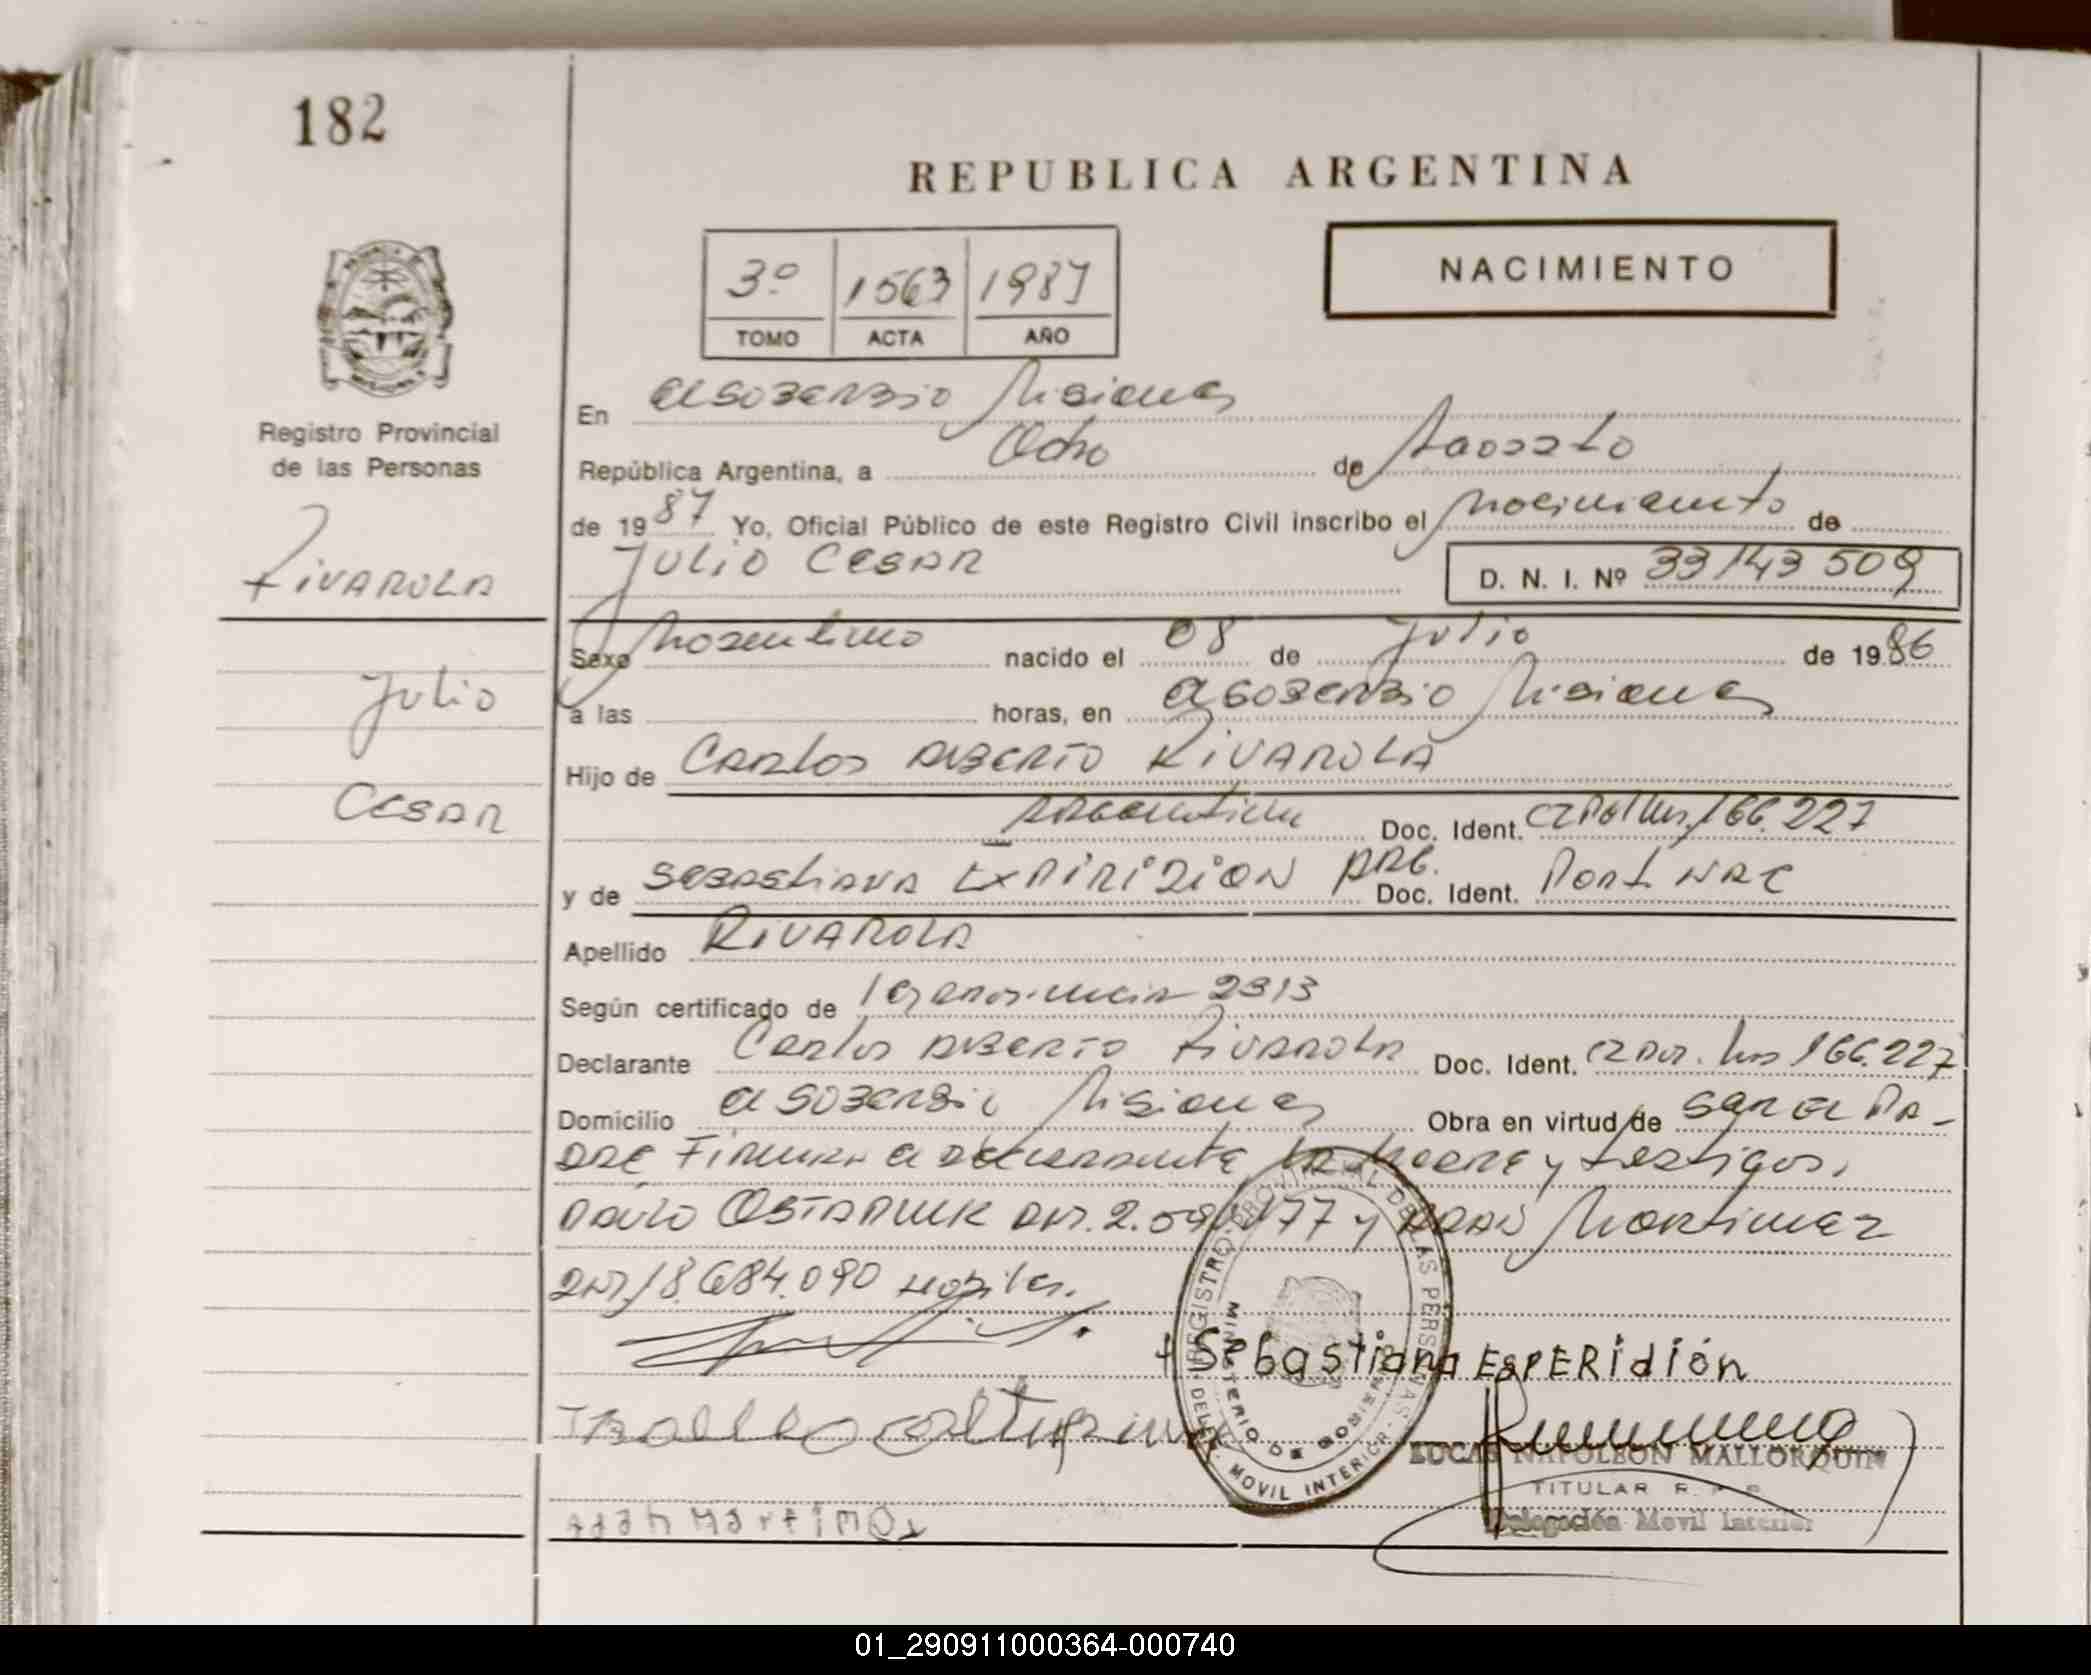 182
REPUBLICA ARGENTINA
NACIMIENTO
3º 1563 1987
TOMO ACTA AÑO
Registro Provincial
de las Personas
RIVAROLA
Julio
CESAR
En Misiones
República Argentina, a Ocho de Agosto
de 1987 Yo, Oficial Público de este Registro Civil inscribo el Nacimiento de
JULIO CESAR D. N. I. Nº 33143509
Sexo Masculino nacido el 08 de Julio de 1986
a las horas, en Misiones
Hijo de Carlos ALBERTO RIVAROLA
Argentino Doc. Ident. 166.227
y de SEBASTIANA EXPIRIDION ARG. Doc. Ident. NAC
Apellido RIVAROLA
Según certificado de 2313
Declarante Carlos ALBERTO RIVAROLA Doc. Ident. 166.227
Domicilio Misiones Obra en virtud de ser el PA-
DRE Firman el declarante la Madre y testigos,
y ADAN Martinez
18.684.090
+ Sebastiana EsPERidión
LUCAS NAPOLEON MALLORQUIN
TITULAR R. P. P.
Delegación Movil Interior
Adan Martinez
REGISTRO PROVINCIAL DE LAS PERSONAS
MINISTERIO DE GOBIERNO
MOVIL INTERIOR
01_290911000364-000740